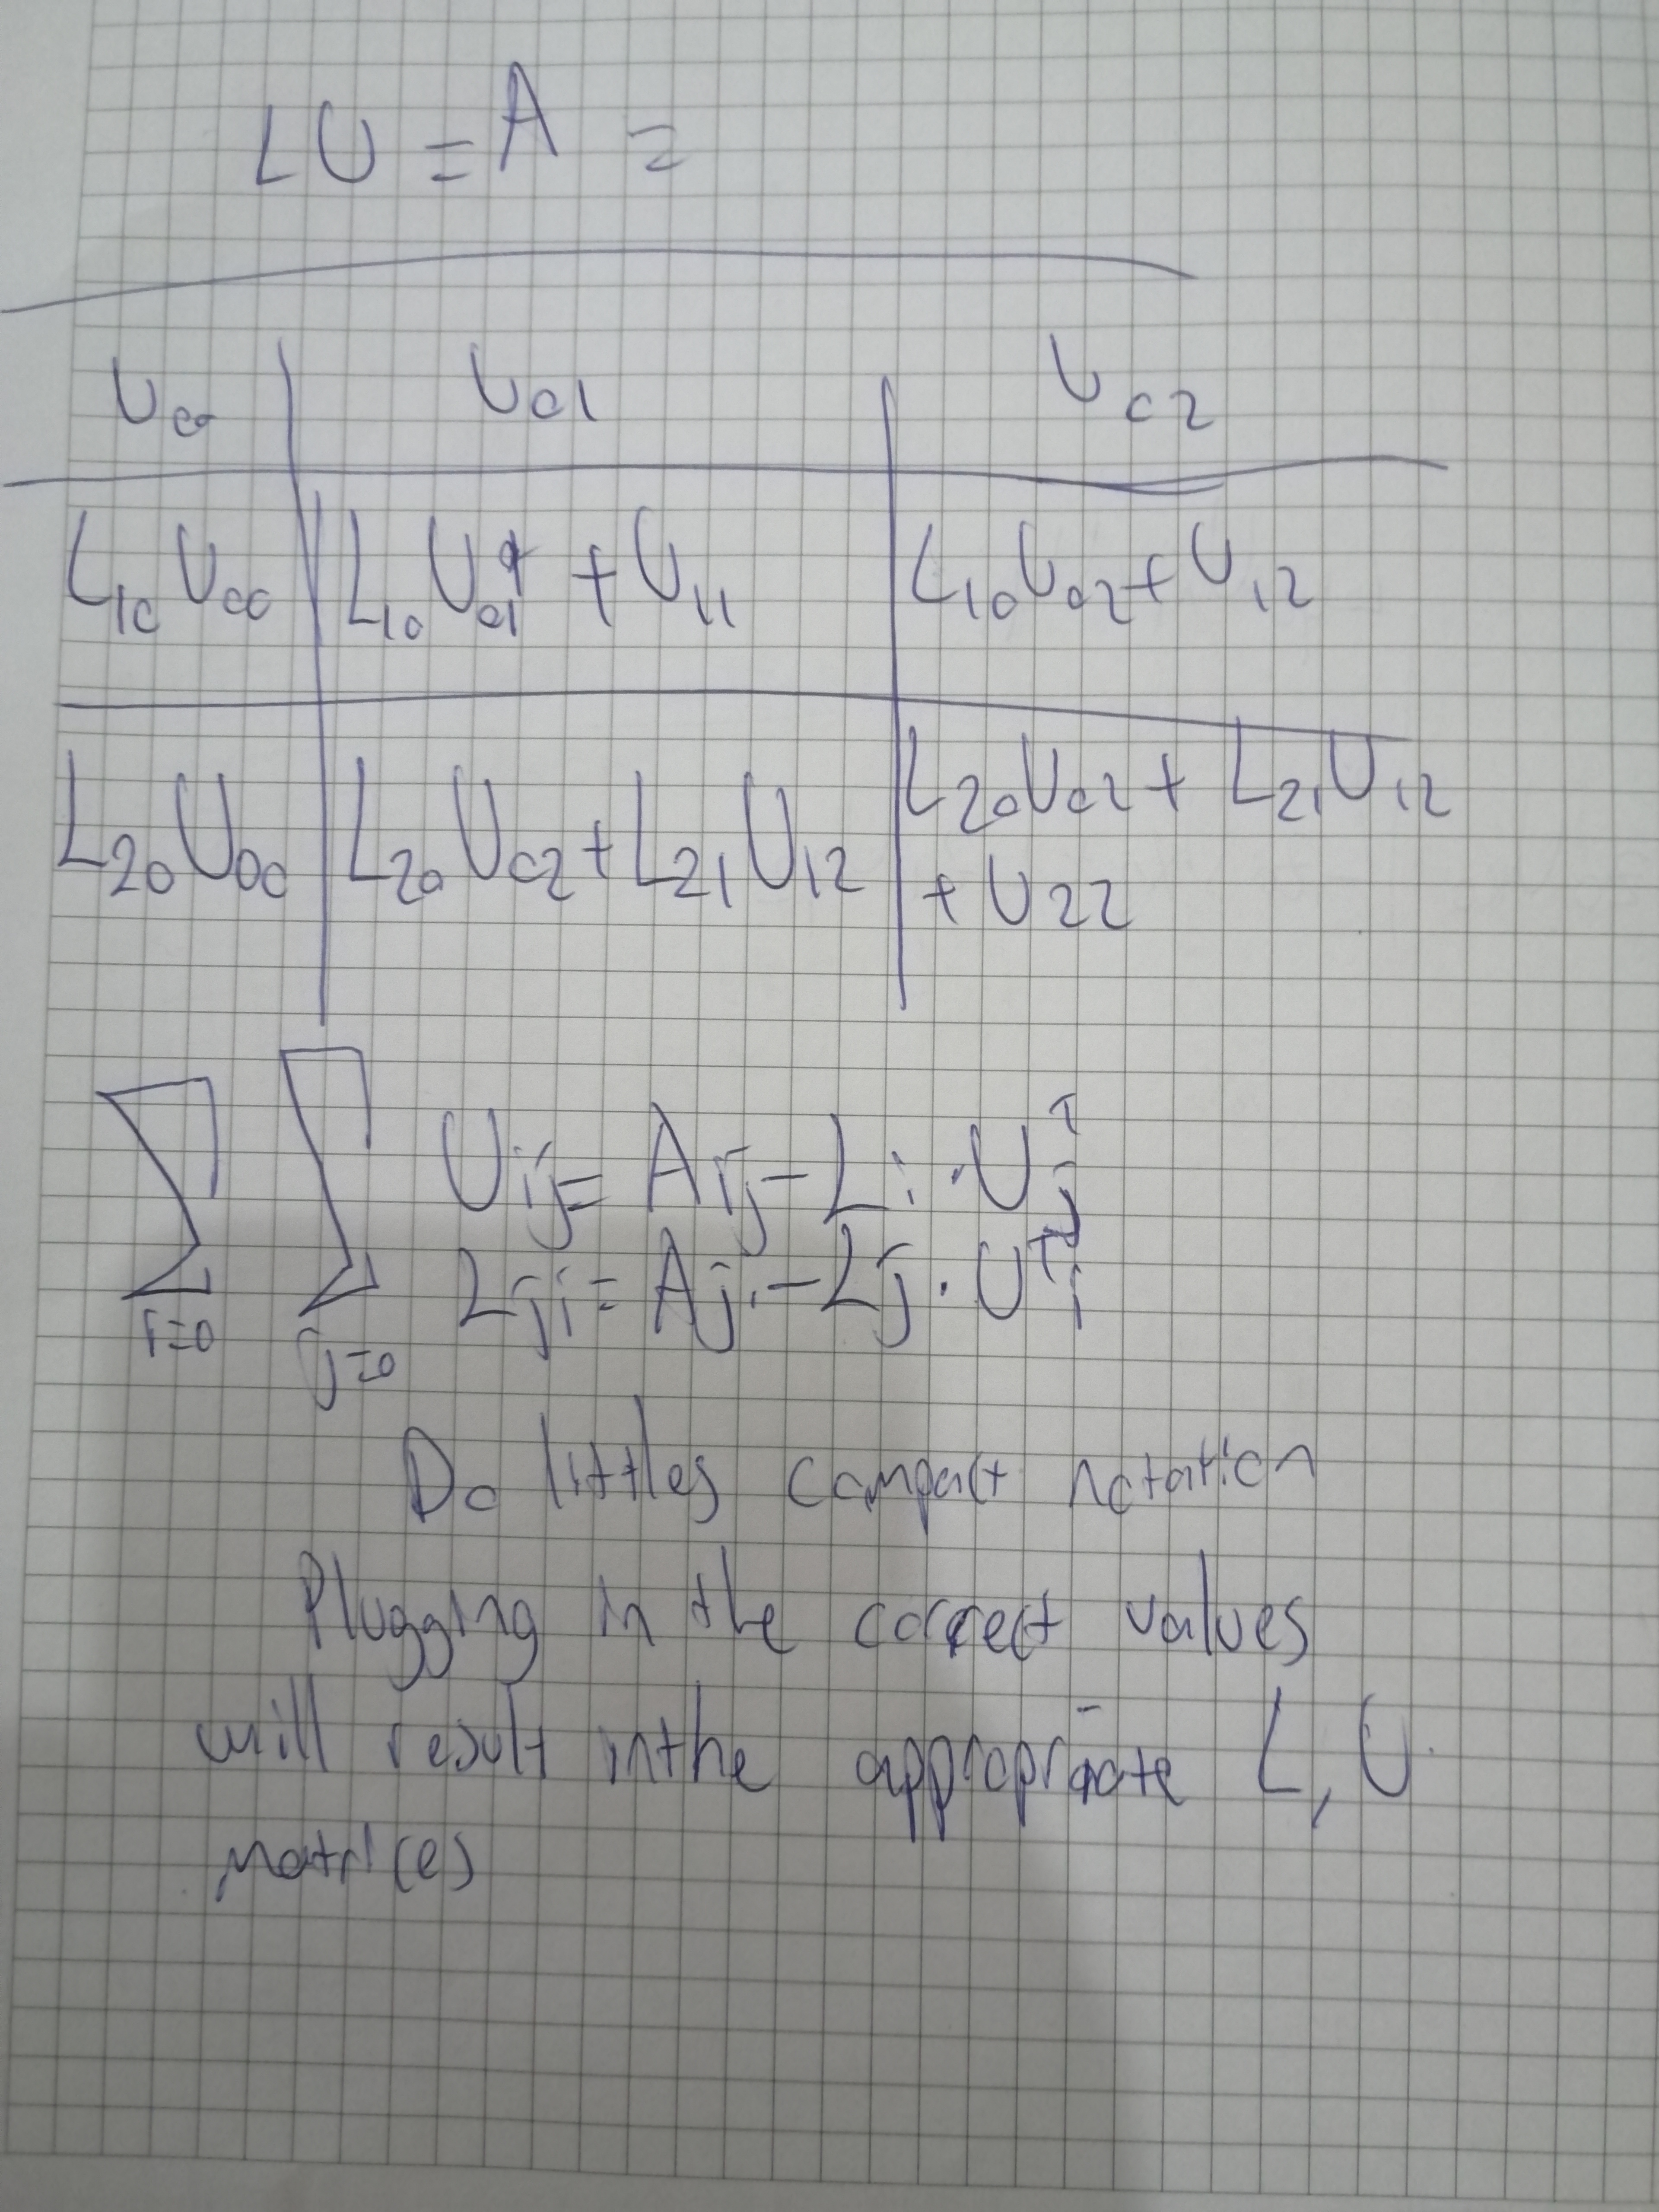 LU = A =
U00 U01 U02
L10 U00 L10 U01 + U11 L10 U02 + U12
L20 U00 L20 U02 + L21 U12 L20 U02 + L21 U12
+ U22
∑ i=0 ∑ j=0 Uij = Aij - Li · Uj^T
Lji = Aj. - Lj · U^T i
Do littles compact notation
Plugging in the correct values
will result in the appropriate L, U
matrices